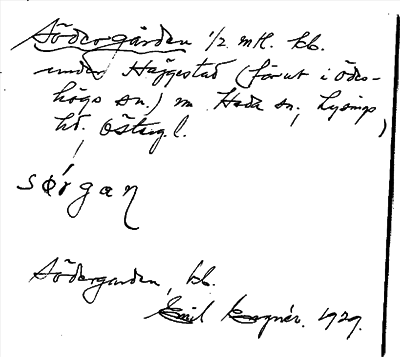 Södergården 1/2 mtl. kb.
under Häggestad (förut i Ödes-
högs sn.) m Heda sn., Lysings
hd. Östergl.
sørgan
Södergarden, kb.
Emil 1929.